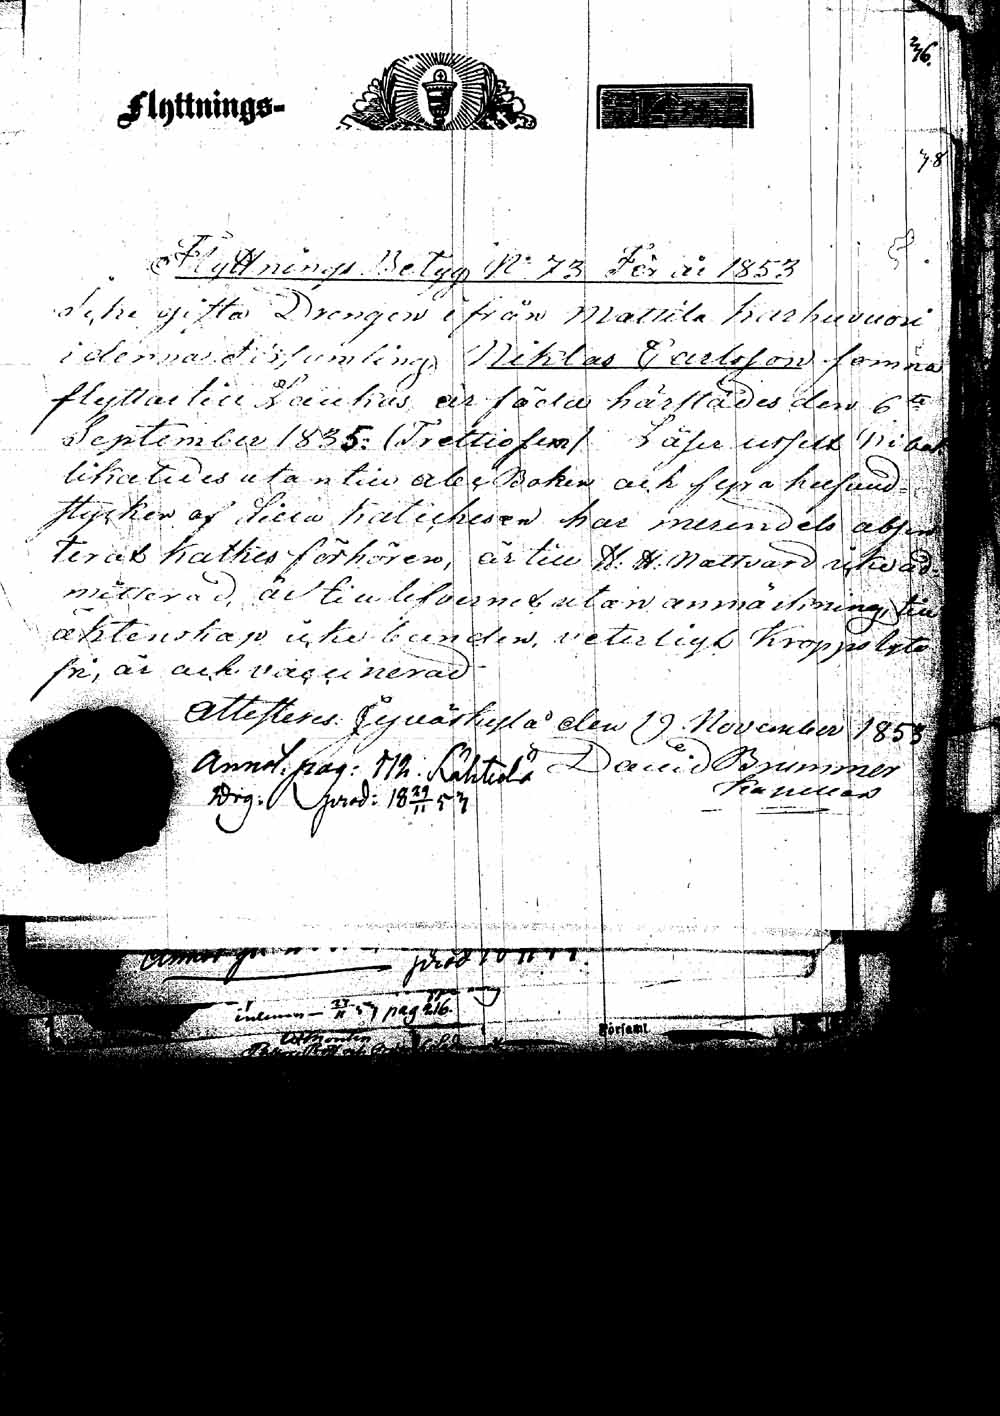 276.
Flyttnings-
78
Flyttnings Betyg No 73 För år 1853
Icke gifta Drengen ifrån Mattila Karhuvuori
i denna Församling, Niklas Carlsson som nu
flyttar till Laukas, är född härstädes den 6te
September 1835. (Trettiofem) Läser
likaledes utantill abc Boken och fyra hufvud-
stycken af Lilla Katichesen har merendels absen
terat Kathes förhören, är till H. H. Nattvard icke ad-
mitterad, är till lefvernet utan anmärkning, till
äktenskap icke bunden, veterligt Kroppslyte
fri, är och vaccinerad
Attesteras. Jyväskylä den 19 November 1853
David Brummer
Annot. pag: 172. Lahtela
Kapellan
prod: 18 29/11 53
prod
pag 216.
Församl